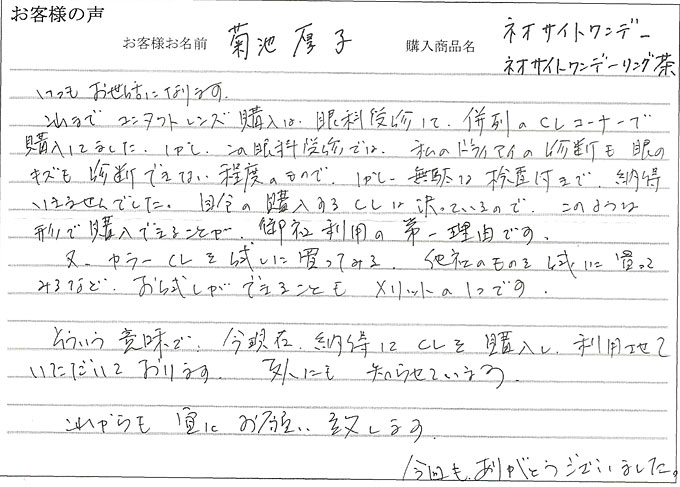 お客様の声
お客様お名前 菊池 厚子 購入商品名 ネオサイトワンデー
ネオサイトワンデーリング茶
いつも お世話になります。
これまで コンタクトレンズ 購入は、眼科受診して、併列のCLコーナーで
購入してました。しかし、この眼科受診では、私のドライアイの診断も 眼の
キズも 診断できない 程度のもので、しかし 無駄な 検査付きで、納得
いきませんでした。自分の購入するCLは 決っているので、このような
形で購入できることが、御社利用の 第一理由です。
又、カラーCLを試しに買ってみる、他社のものを試に買って
みるなど、お試しができることも メリットの1つです。
そういう意味で、今現在、納得して CLを購入し、利用させて
いただいております。友人にも 知らせています。
これからも 宜しく お願い 致します。
今回も、ありがとうございました。